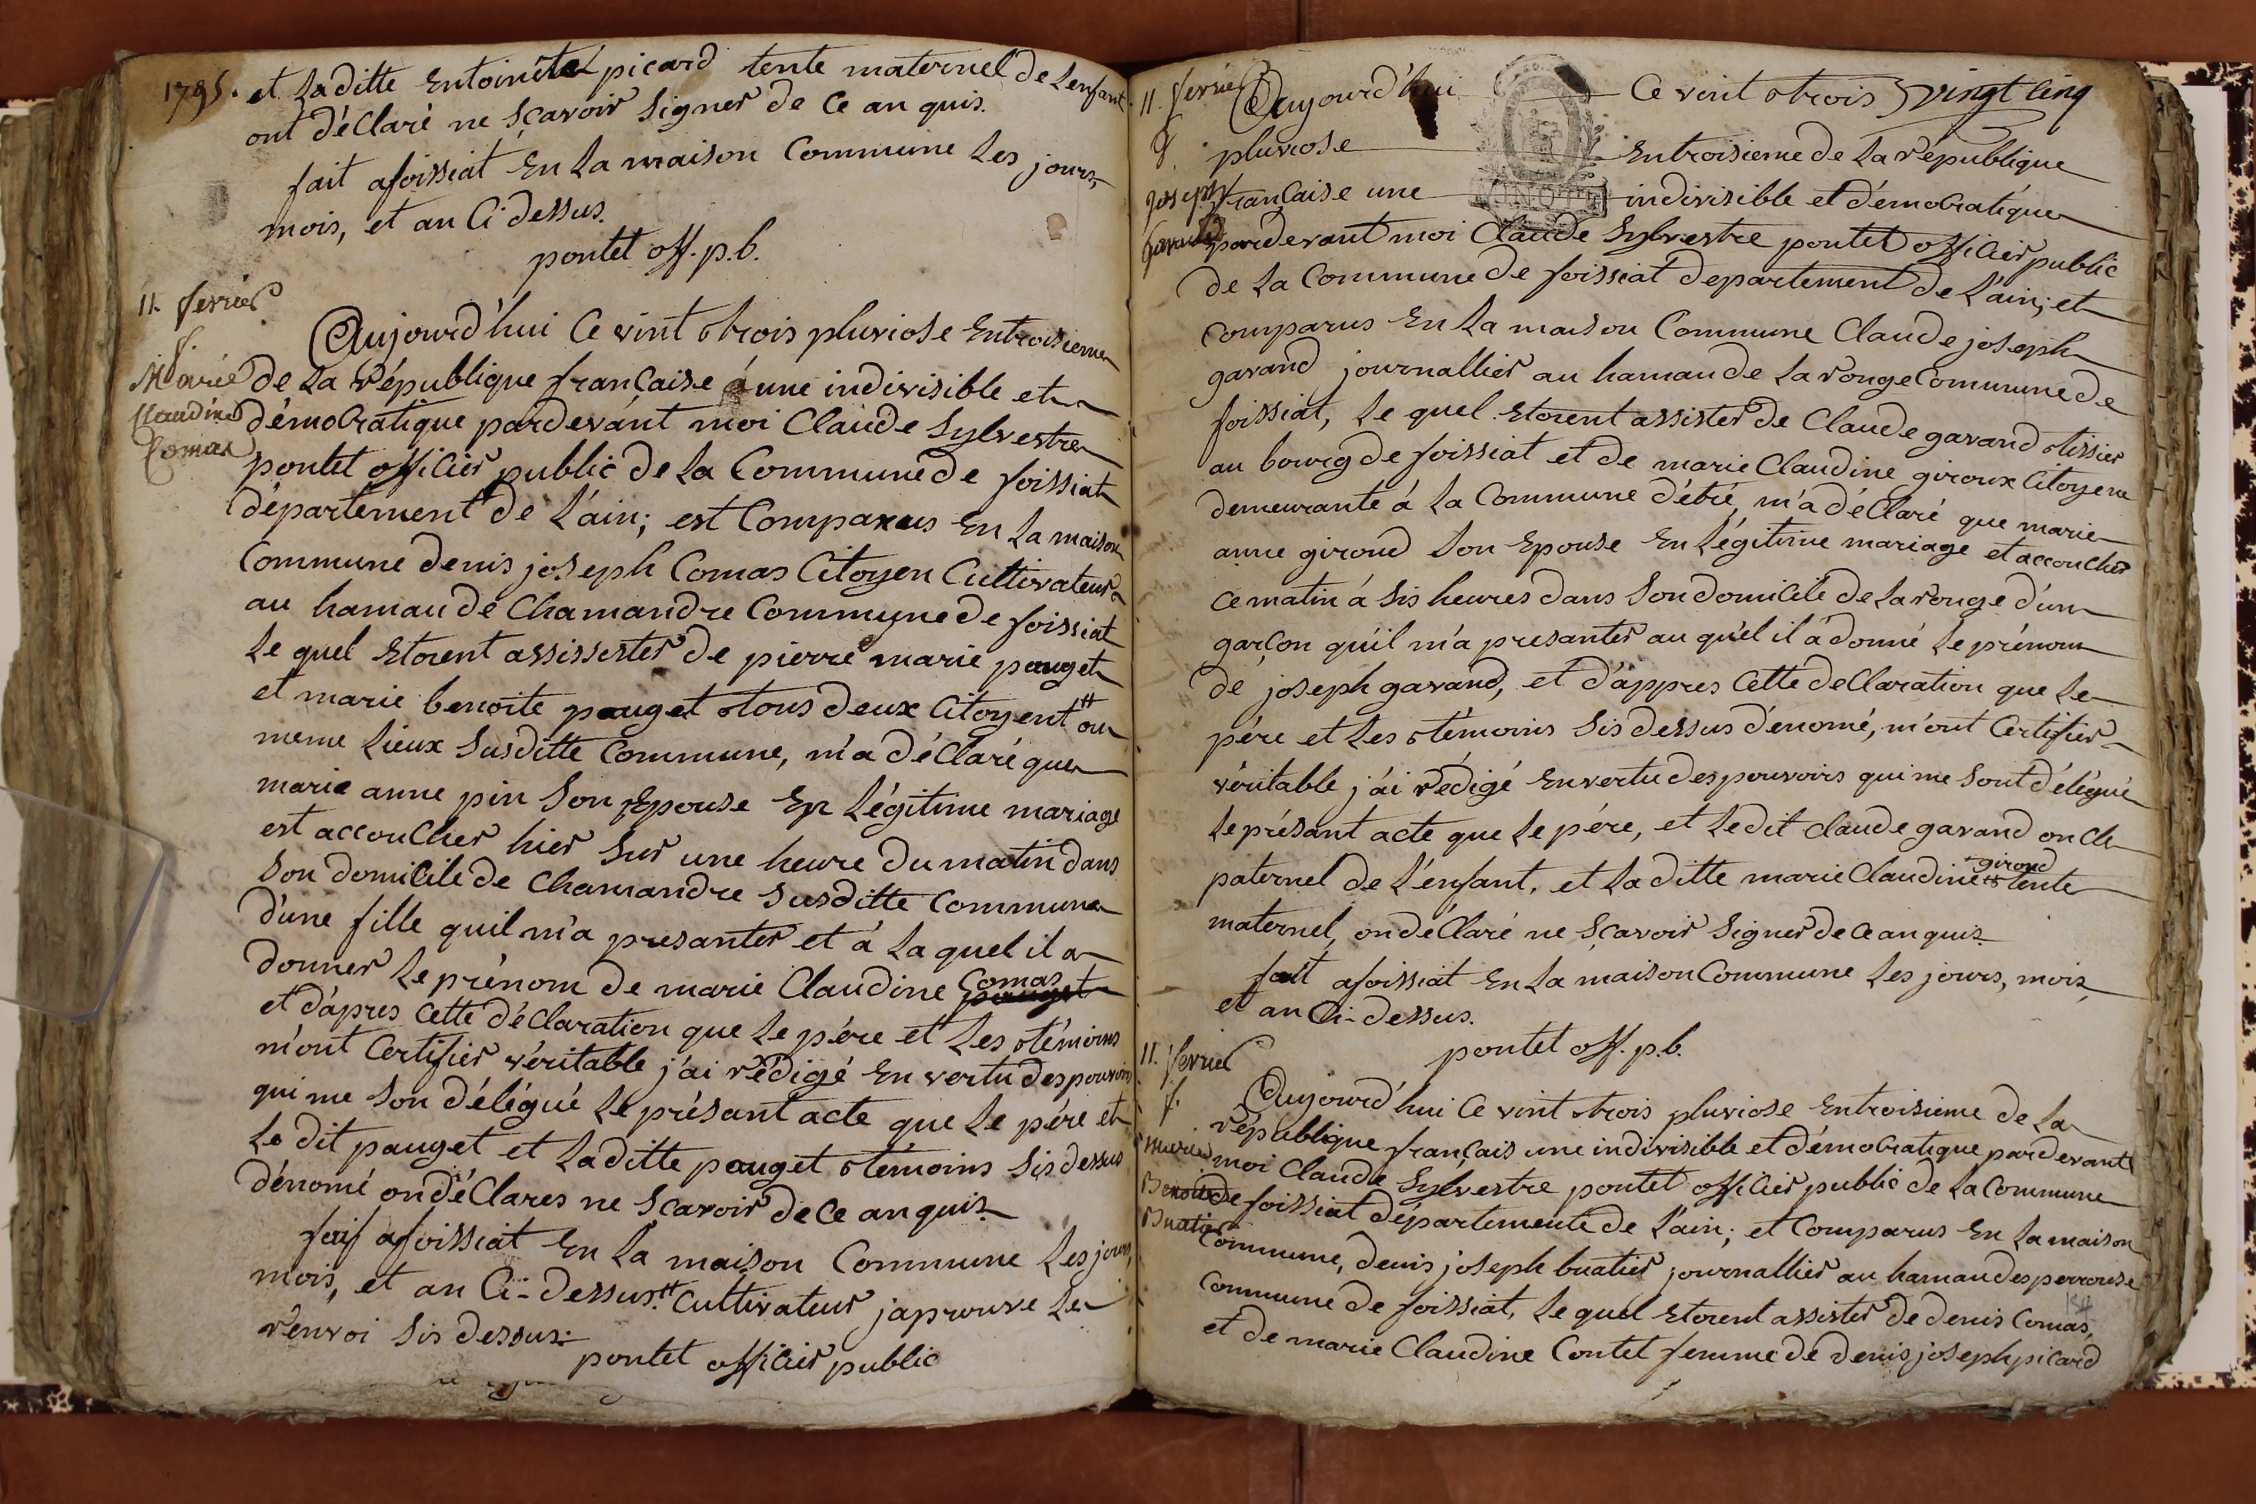 1795. et Laditte Entoinéte picard tente maternel de Lenfant
ont déClaré ne sçavoir signer de Ce an quis.
fait afoissiat En La maison Commune Les jours,
mois, et an Ci dessus.
pontet off. p. b.
11. fevrier
f.
Marie
Claudine
Comas
Aujourd'hui Ce vint trois pluviose Entroisieme
de La république française une indivisible et
démoCratique pardevant moi Claude Sylvestre
pontet officier public de La Commune de foissiat
département de L'ain; est Comparus En La maison
Commune denis joseph Comas Citoyen Cultivateur
au hamau de Chamandre Commune de foissiat
Le quel Etorent assissester de pierre marie pauget
et marie benoite pauget tous deux Citoyent # au
meme Lieux susditte Commune, m'a déClaré que
marie anne pin son Epouse En Légitime mariage
est accouCher hier sur une heure du matin dans
son domiCile de Chamandre susditte Commune
d'une fille quil m'a presanter et á La quel il a
donner Le prénom de marie Claudine Comas pauget
et d'apres Cette déClaration que Le pére et Les témoins
m'ont Certifier véritable j'ai rédigé En vertu des pouvoirs
qui me son délégué Le présant acte que Le pére et
Le dit pauget et Laditte pauget témoins sis dessus
dénomé on déClares ne scavoir de Ce an quis
fait afoissiat En La maison Commune Les jours,
mois, et an Ci-dessus. # Cultivateur japrouve Le
renvoi sis dessus.
pontet officier public
vingt Cinq
11. fevrier
g.
joseph
Gavand
Aujourd'hui Ce vint trois
pluviose Entroisieme de La république
française une indivisible et démoCratique
pardevant moi Claude Sylvestre pontet officier public
de La Commune de foissiat departement de L'ain; et
Comparus En La maison Commune Claude joseph
gavand journallier au hamau de La rouge Commune de
foissiat, Le quel Etorent assister de Claude gavand tissier
au bourg de foissiat et de marie Claudine giroux Citoyene
demeurante á La Commune d'étré, m'a déClaré que marie
anne giroud son Epouse En Légitime mariage et accouCher
Ce matin á sis heures dans son domiCile de La rouge d'un
garçon qu'il m'a presanter au quel il á donné Le prénom
de joseph gavand, et d'appres Cette deClaration que Le
pére et Les témoins sis dessus dénomé, m'ont Certifier
véritable j'ai rédigé En vertu des pouvoirs qui me sont délégué
Le présant acte que Le pére, et Ledit Claude gavand oncle
paternel de L'enfant, et La ditte marie Claudine giroud tente
maternel, on déClaré ne sçavoir signer de Ce an quis
fait afoissiat En La maison Commune Les jours, mois
et an Ci-dessus.
pontet off. p. b.
11. fevrier
f.
Marie
Benoite
Buatier
Aujourd'hui Ce vint trois pluviose Entroisieme de La
république français une indivisible et démoCratique pardevant
moi Claude Sylvestre pontet officier public de La Commune
de foissiat départemente de L'ain; et Comparus En La maison
Commune, denis joseph buatier journallier au hamau desperrouse
Commune de foissiat, Le quel Etorent assister de denis Comas,
et de marie Claudine Contet femme de denis joseph picard